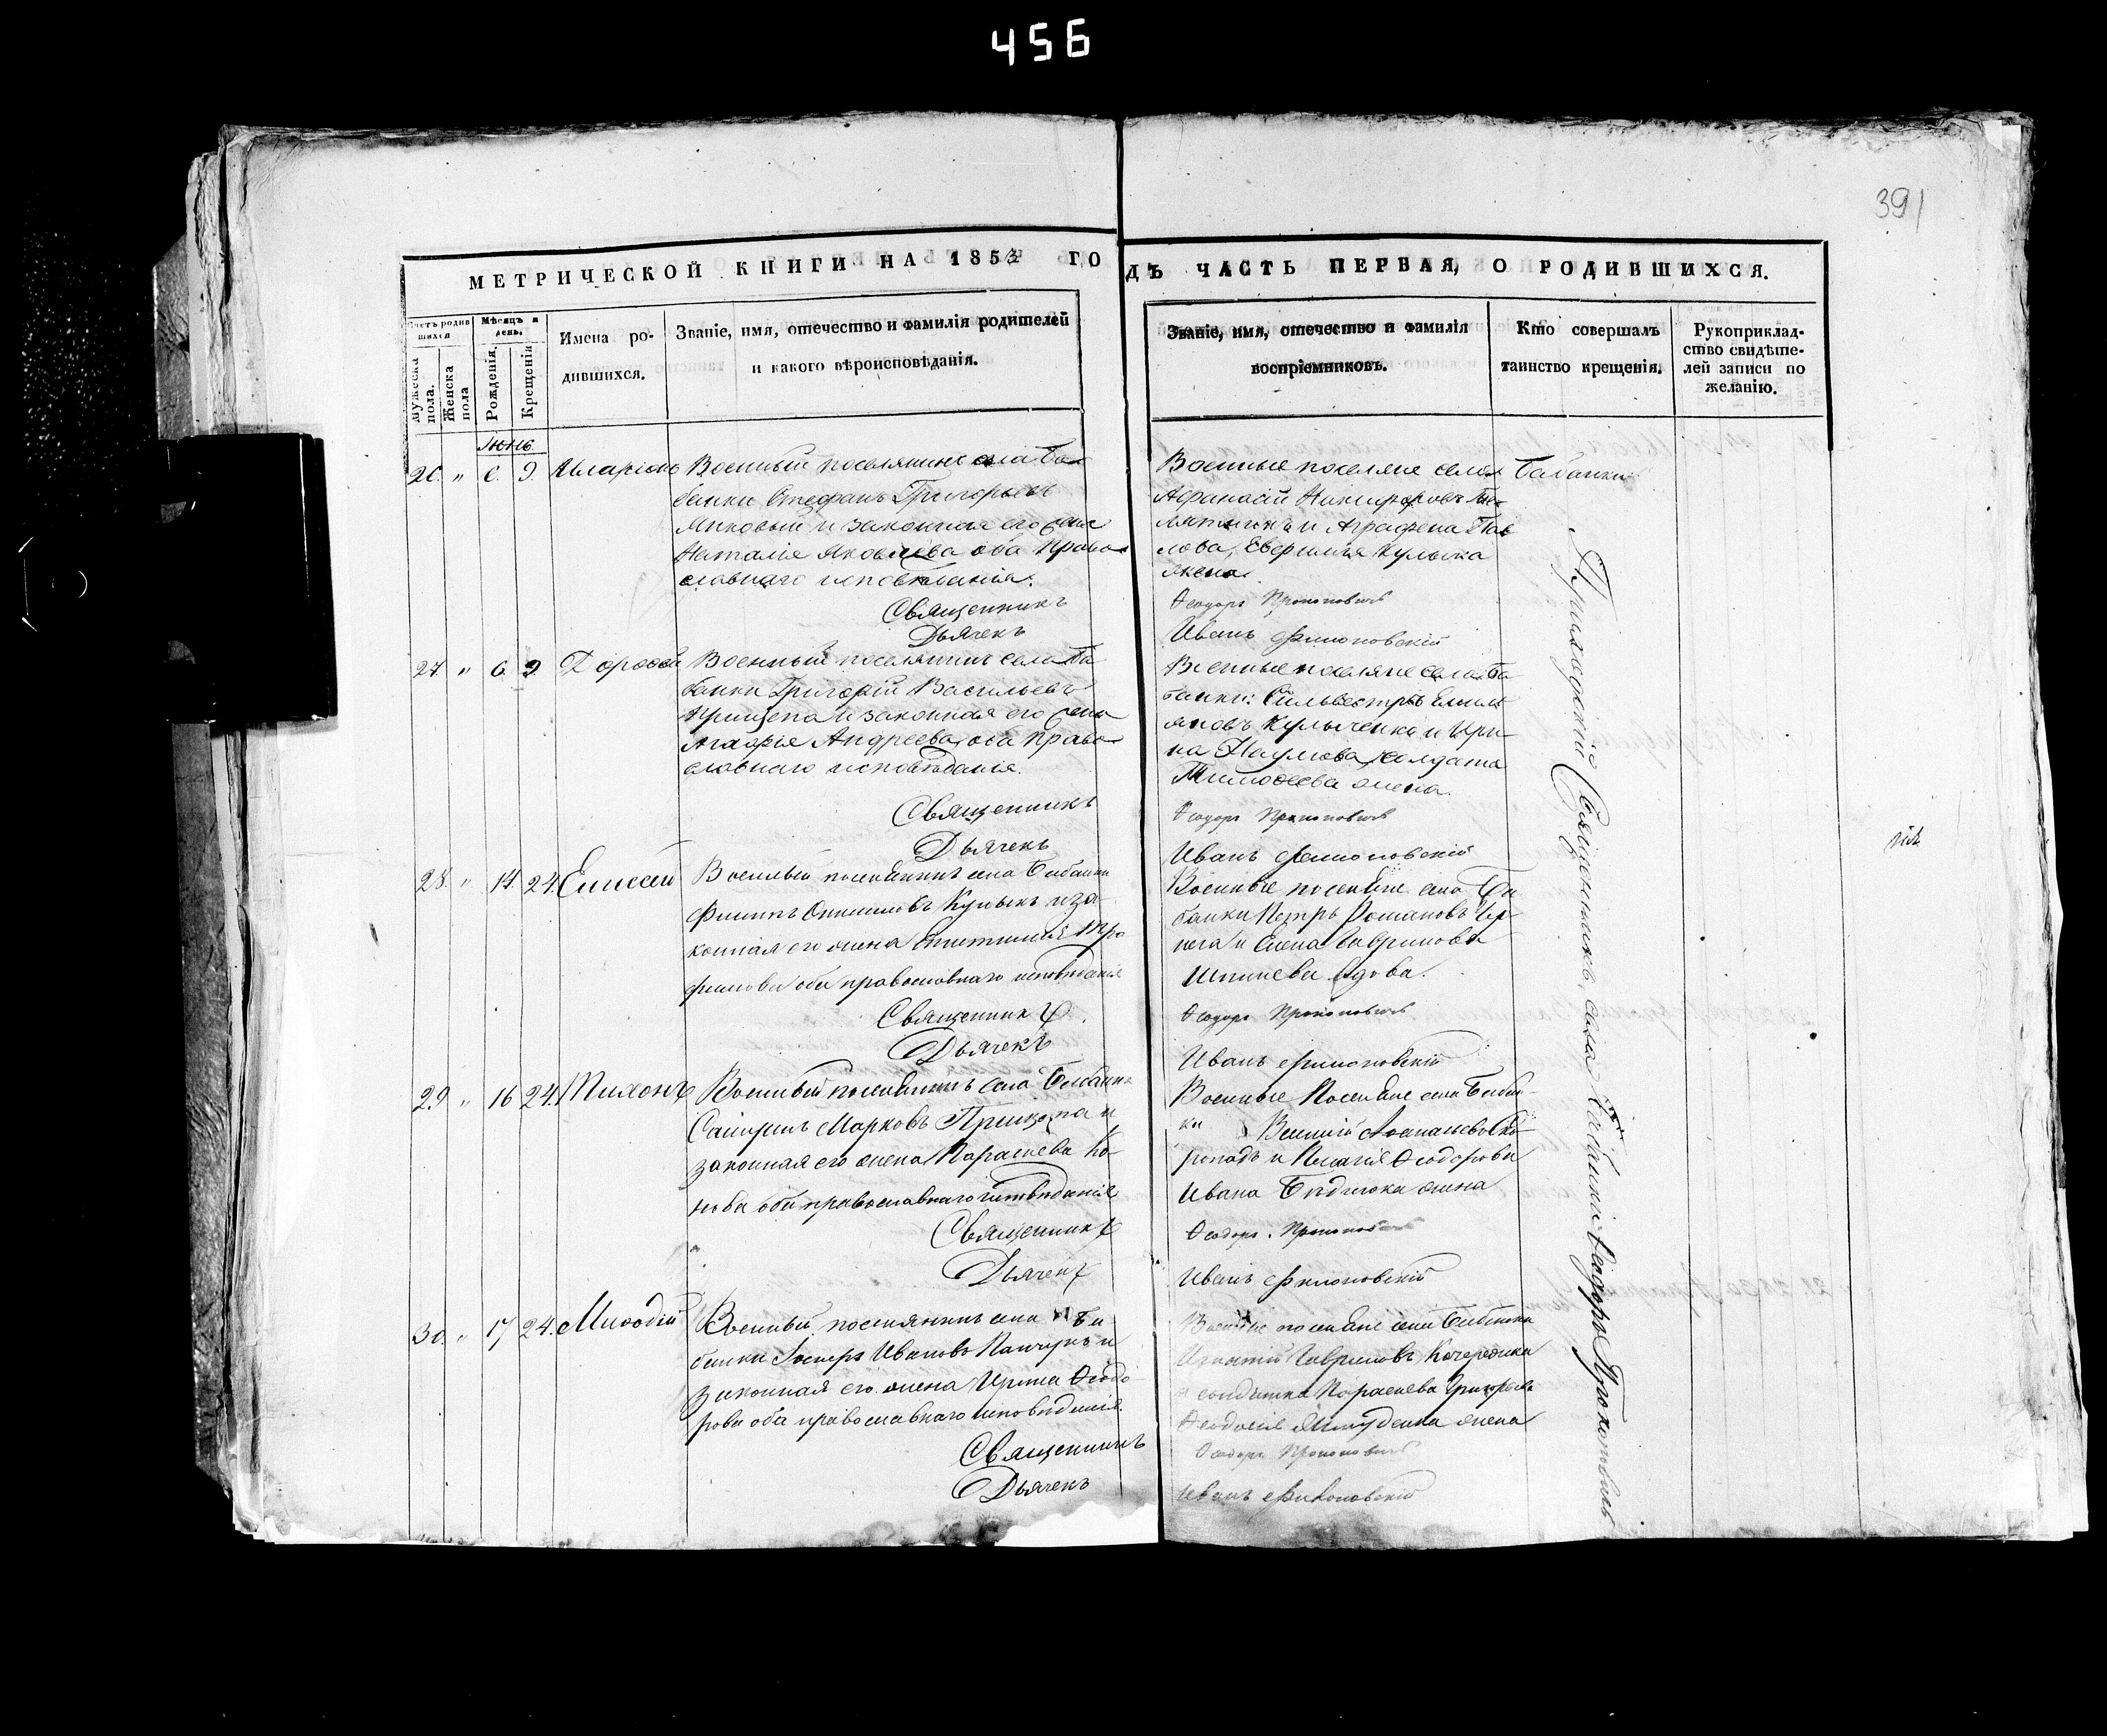 456
391
МЕТРИЧЕСКОЙ КНИГИ НА 1853 ГОДЪ ЧАСТЬ ПЕРВАЯ, О РОДИВШИХСЯ.
Счетъ родившихся
Мѣсяцъ и день.
Имена родившихся.
Званіе, имя, отечество и фамилія родителей
и какого вѣроисповѣданія.
Званіе, имя, отечество и фамилія
воспріемниковъ.
Кто совершалъ
таинство крещенія.
Рукоприклад-
ство свидѣте-
лей записи по
желанію.
Мужеска пола.
Женска пола
Рожденія.
Крещенія
Іюнь
26. " 6. 9. Иларіонъ Военный поселянинъ села Ба-
банки Стефанъ Григорьевъ
и законная его жена
Наталія Яковлева оба право-
славнаго исповѣданія.
Священникъ
Дьячекъ
Военные поселяне села Бабанки
Афанасій Никифоровъ
и Аграфена Пав
лова, Евфимія Кулыка
жена.
Ѳеодоръ Прокоповичъ
Иванъ Филоновскій
27. " 6 9. Дороѳей Военный поселянинъ села Ба
банки Григорій Васильевъ
Прищепа и законная его жена
Андреева, оба право-
славнаго исповѣданія.
Священникъ
Дьячекъ
Военные поселяне села Ба
банки: Сильвестръ Емель
яновъ Кулыченко и Ири-
на Наумова, солдата
Тимоѳеева жена.
Ѳеодоръ Прокоповичъ
Иванъ Филоновскій
28. " 14. 24. Елисей Военный поселянинъ села Бабанки
Филипъ Кулыкъ и за
конная его жена Тро
фимова оба православнаго исповѣданія
Священникъ.
Дьячекъ
Военные поселяне села Ба
банки Петръ Романовъ
и Елена Гаврилова
вдова.
Ѳеодоръ Прокоповичъ
Иванъ Филоновскій
29 " 16 24. Тихонъ Военный поселянинъ села Бабанки
Марковъ Прищепа и
законная его жена Параскева Ко-
нова оба православнаго исповѣданія
Священникъ
Дьячекъ
Военные поселяне села Бабан-
ки
и Пелагія Ѳеодорова
Ивана жена
Ѳеодоръ Прокоповичъ
Иванъ Филоновскій
30. " 17 24. Меѳодій Военный поселянинъ села Ба
банки Іосифъ Ивановъ и
законная его жена Ирина Ѳеодо-
рова оба православнаго исповѣданія.
Священникъ
Дьячекъ
Военные поселяне села Бабанки
Игнатій Гавриловъ Кочережка
и солдатка Параскева Григорьева
Ѳеодосія жена
Ѳеодоръ Прокоповичъ
Иванъ Филоновскій
Приходскій Священникъ села Бабанки Ѳеодоръ Прокоповичъ